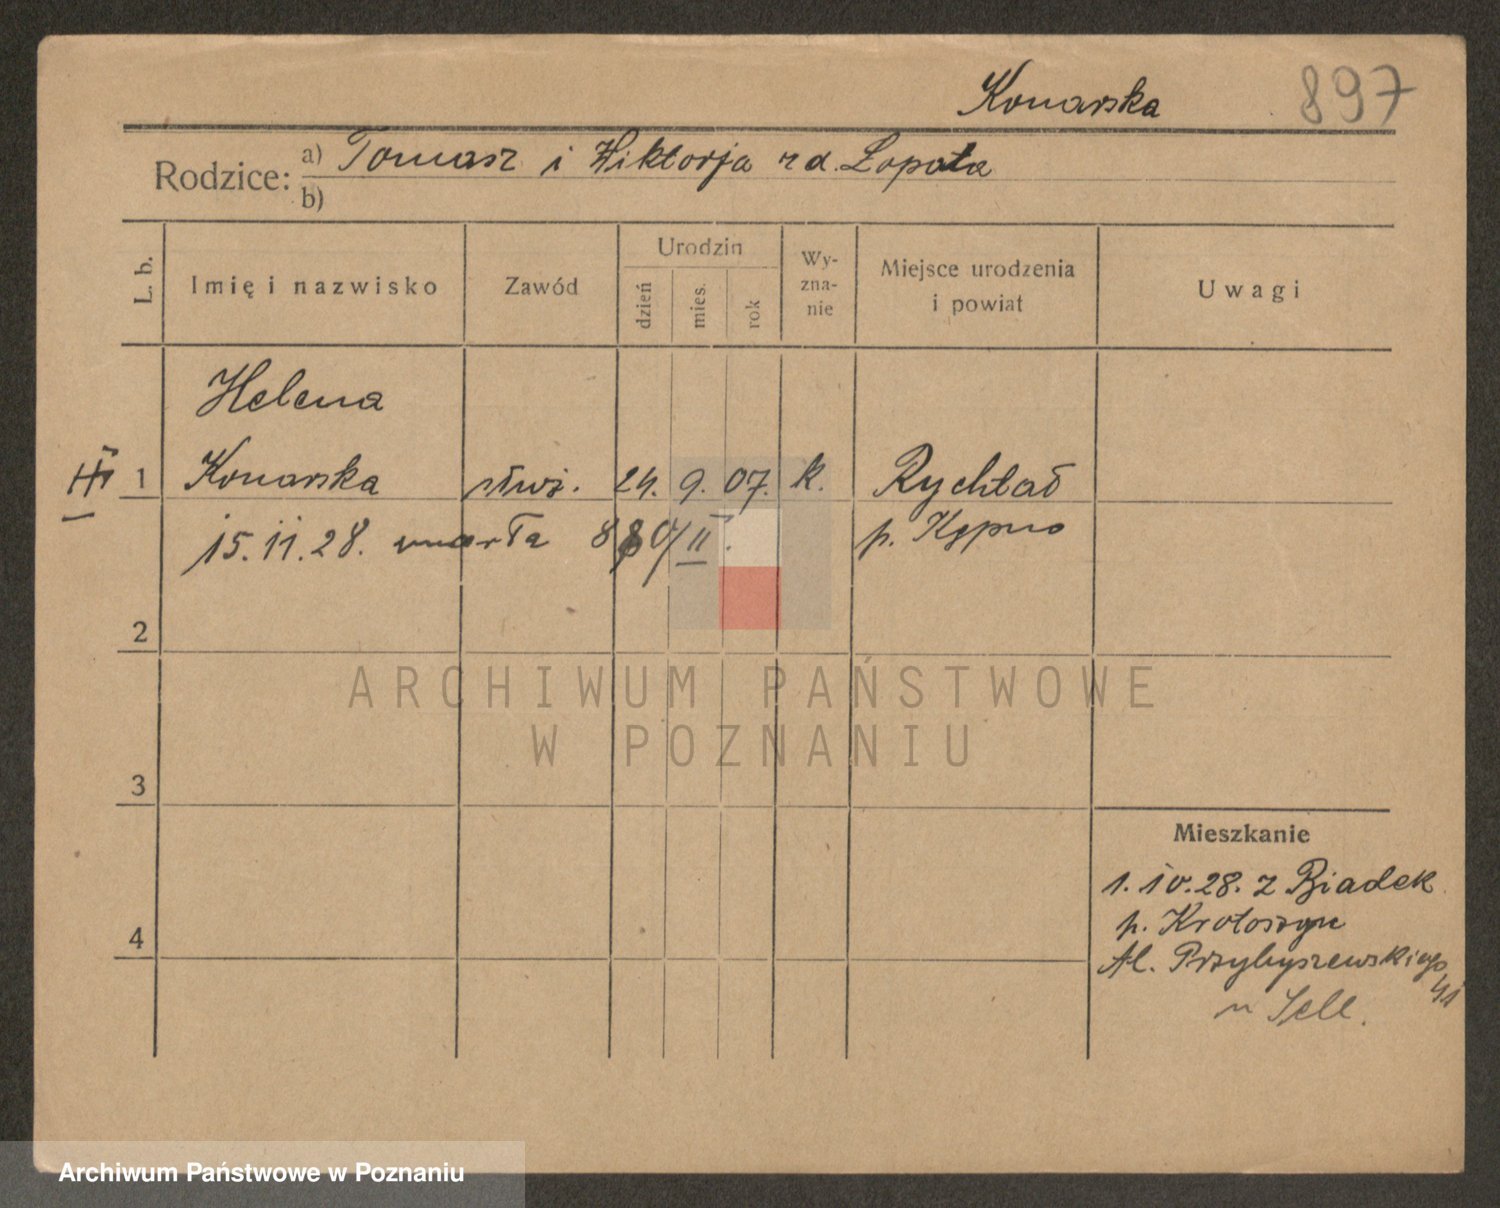 Konarska 897
Rodzice: a) Tomasz i Wiktorja rd. Łopata
b)
L. b.
Imię i nazwisko
Zawód
Urodzin
dzień
mies.
rok
Wy-
zna-
nie
Miejsce urodzenia
i powiat
Uwagi
Helena
1 Konarska służ. 24. 9. 07. k. Rychtał
15.11.28. umarła 880/II. p. Kępno
2
ARCHIWUM PAŃSTWOWE
W POZNANIU
3
Mieszkanie
1.10.28. z Biadek
p. Krotoszyn
4
Al. Przybyszewskiego
41
u Sell.
Archiwum Państwowe w Poznaniu